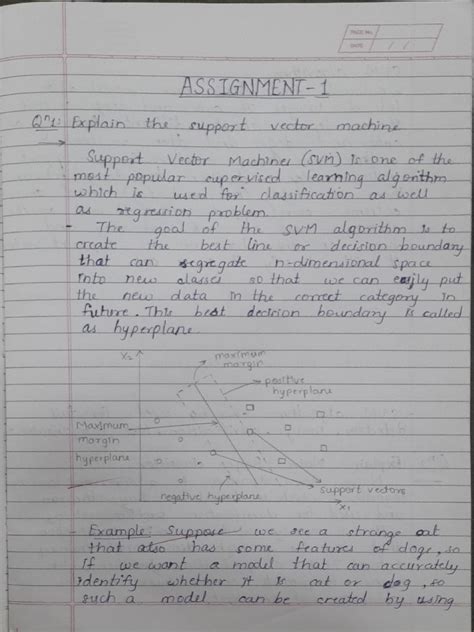 PAGE No.
DATE
ASSIGNMENT-1
Qn1: Explain the support vector machine
→ Support Vector Machines (SVM) is one of the
most popular supervised learning algorithm
which is used for classification as well
as regression problem
- The goal of the SVM algorithm is to
create the best line or decision boundary
that can segregate n-dimensional space
into new classes so that we can easily put
the new data in the correct category in
future. This best decision boundary is called
as hyperplane.
X2
maximum
margin
positive
hyperplane
Maximum
margin
hyperplane
negative hyperplane
support vectors
X1
- Example: Suppose we see a strange cat
that also has some features of dogs, so
if we want a model that can accurately
identify whether it is cat or dog, so
such a model can be created by using